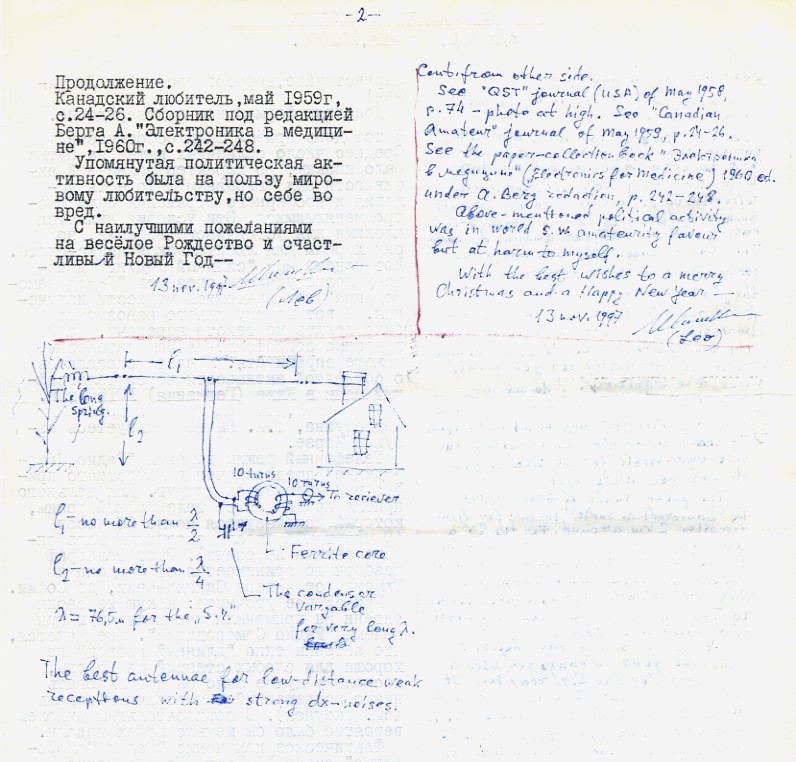 -2-
Продолжение.
Канадский любитель,май 1959г,
с.24-26. Сборник под редакцией
Берга А."Электроника в медици-
не",1960г.,с.242-248.
Упомянутая политическая ак-
тивность была на пользу миро-
вому любительству,но себе во
вред.
С наилучшими пожеланиями
на весёлое Рождество и счаст-
ливый Новый Год--
13 nov. 1997
(Лев)
Cont. from other side.
See "QST" journal (USA) of May 1958,
p. 74 - photo at high. See "Canadian
Amateur" journal of May 1959, p. 24-26.
See the paper-collection book "Электроника
в медицине" (Electronics for Medicine) 1960 ed.
under A. Berg redaction, p. 242-248.
Above-mentioned political activity
was in world s.w. amateurity favour
but at harm to myself.
With the best wishes to a merry
Christmas and a Happy New Year —
13 nov. 1997
(Leo)
ℓ1
The long
spring.
ℓ2
10 turns
10 turns
To reciever
ℓ1 - no more than λ/2
Ferrite core
ℓ2 - no more than λ/4
The condenser
varyable
for very long λ.
λ = 76,5m for the "S.Y."
The best antennae for low-distance weak
receptions with strong dx-noises.